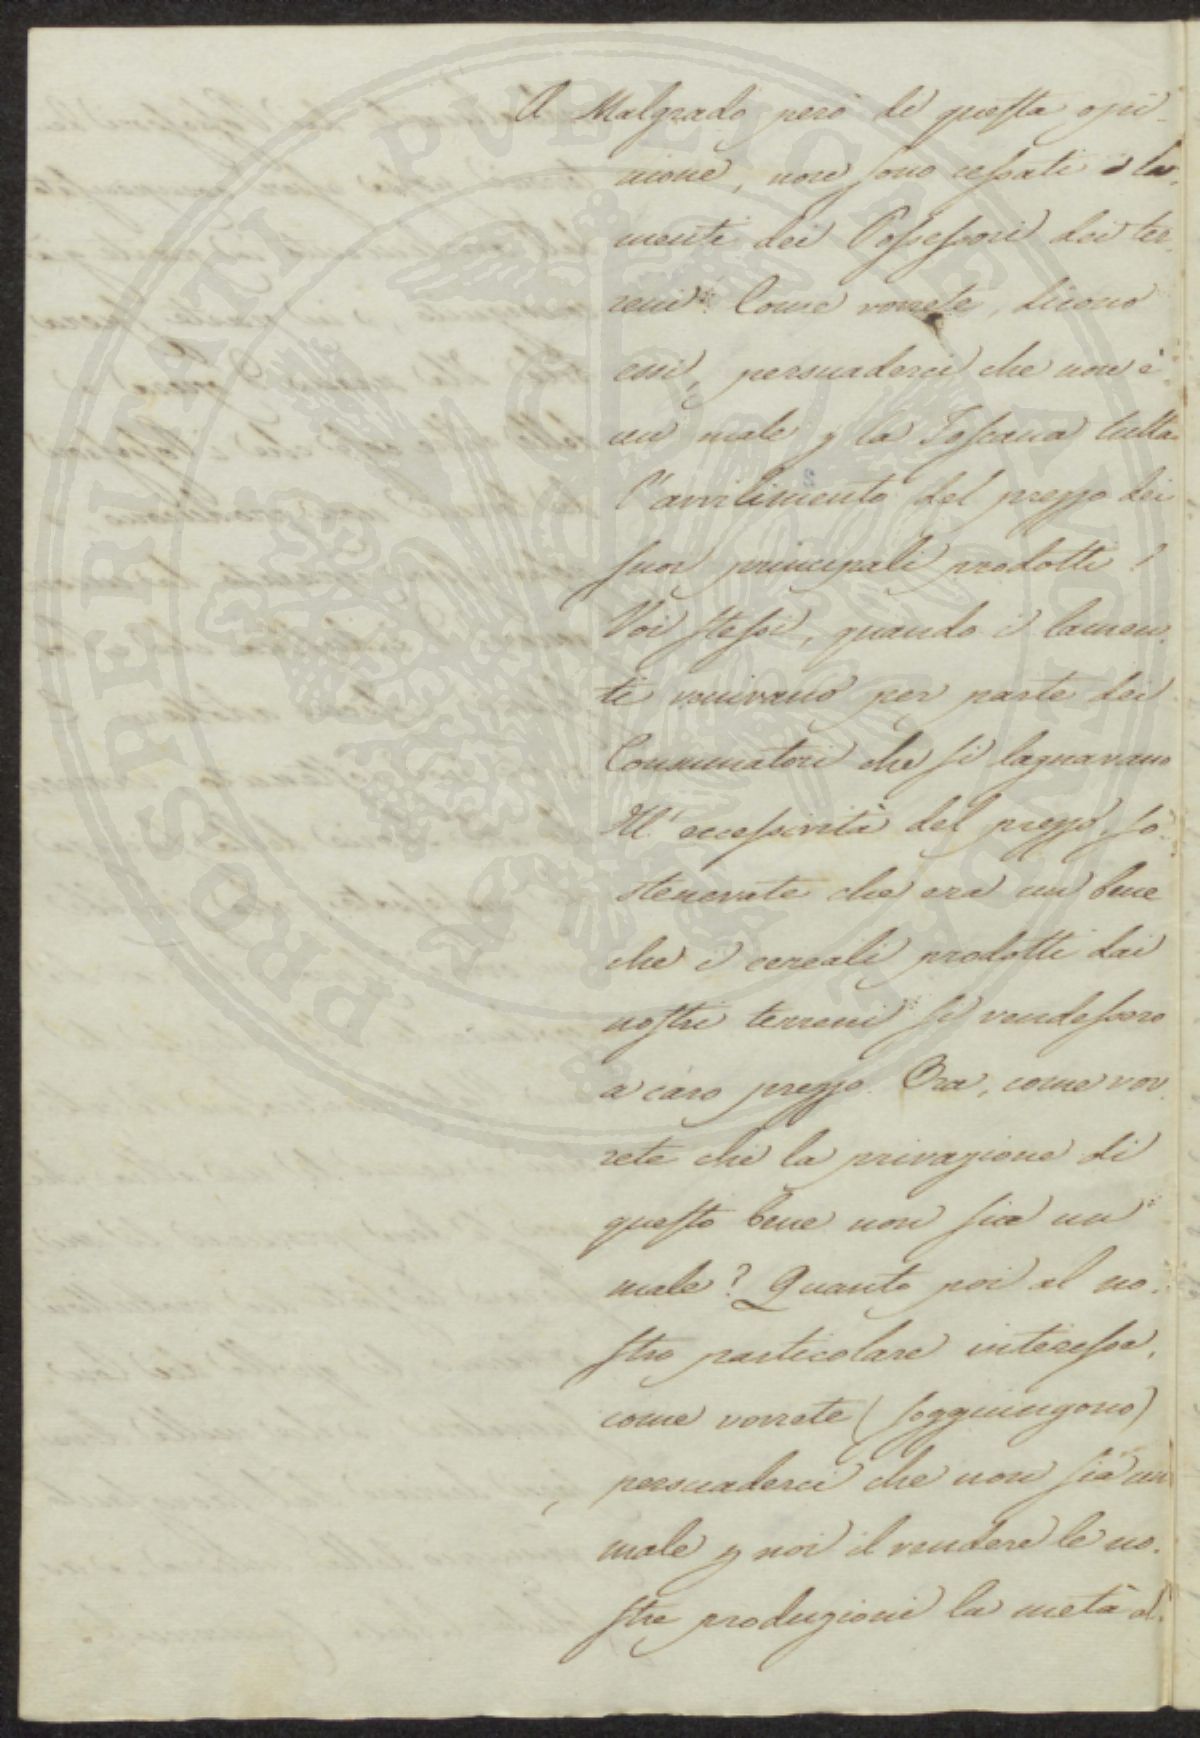 A Malgrado però di questa opi-
nione, non sono cessati i la-
menti dei Possessori dei ter-
reni. Come vorrete, dicono
essi, persuaderci che non è
un male p la Toscana tutta
l'avvilimento del prezzo dei
suoi principali prodotti!
Voi stessi, quando i lamen-
ti venivano per parte dei
Consumatori che si lagnavano
dell'eccessività del prezzo, so-
stenevate che era un bene
che i cereali prodotti dai
nostri terreni si vendessero
a caro prezzo. Ora, come vor-
rete che la privazione di
questo bene non sia un
male? Quanto poi al no-
stro particolare interesse,
come vorrete (soggiungono)
persuaderci che non sia un
male p noi il vendere le no-
stre produzioni la metà al-
PROSPERITATI PVBLICAE